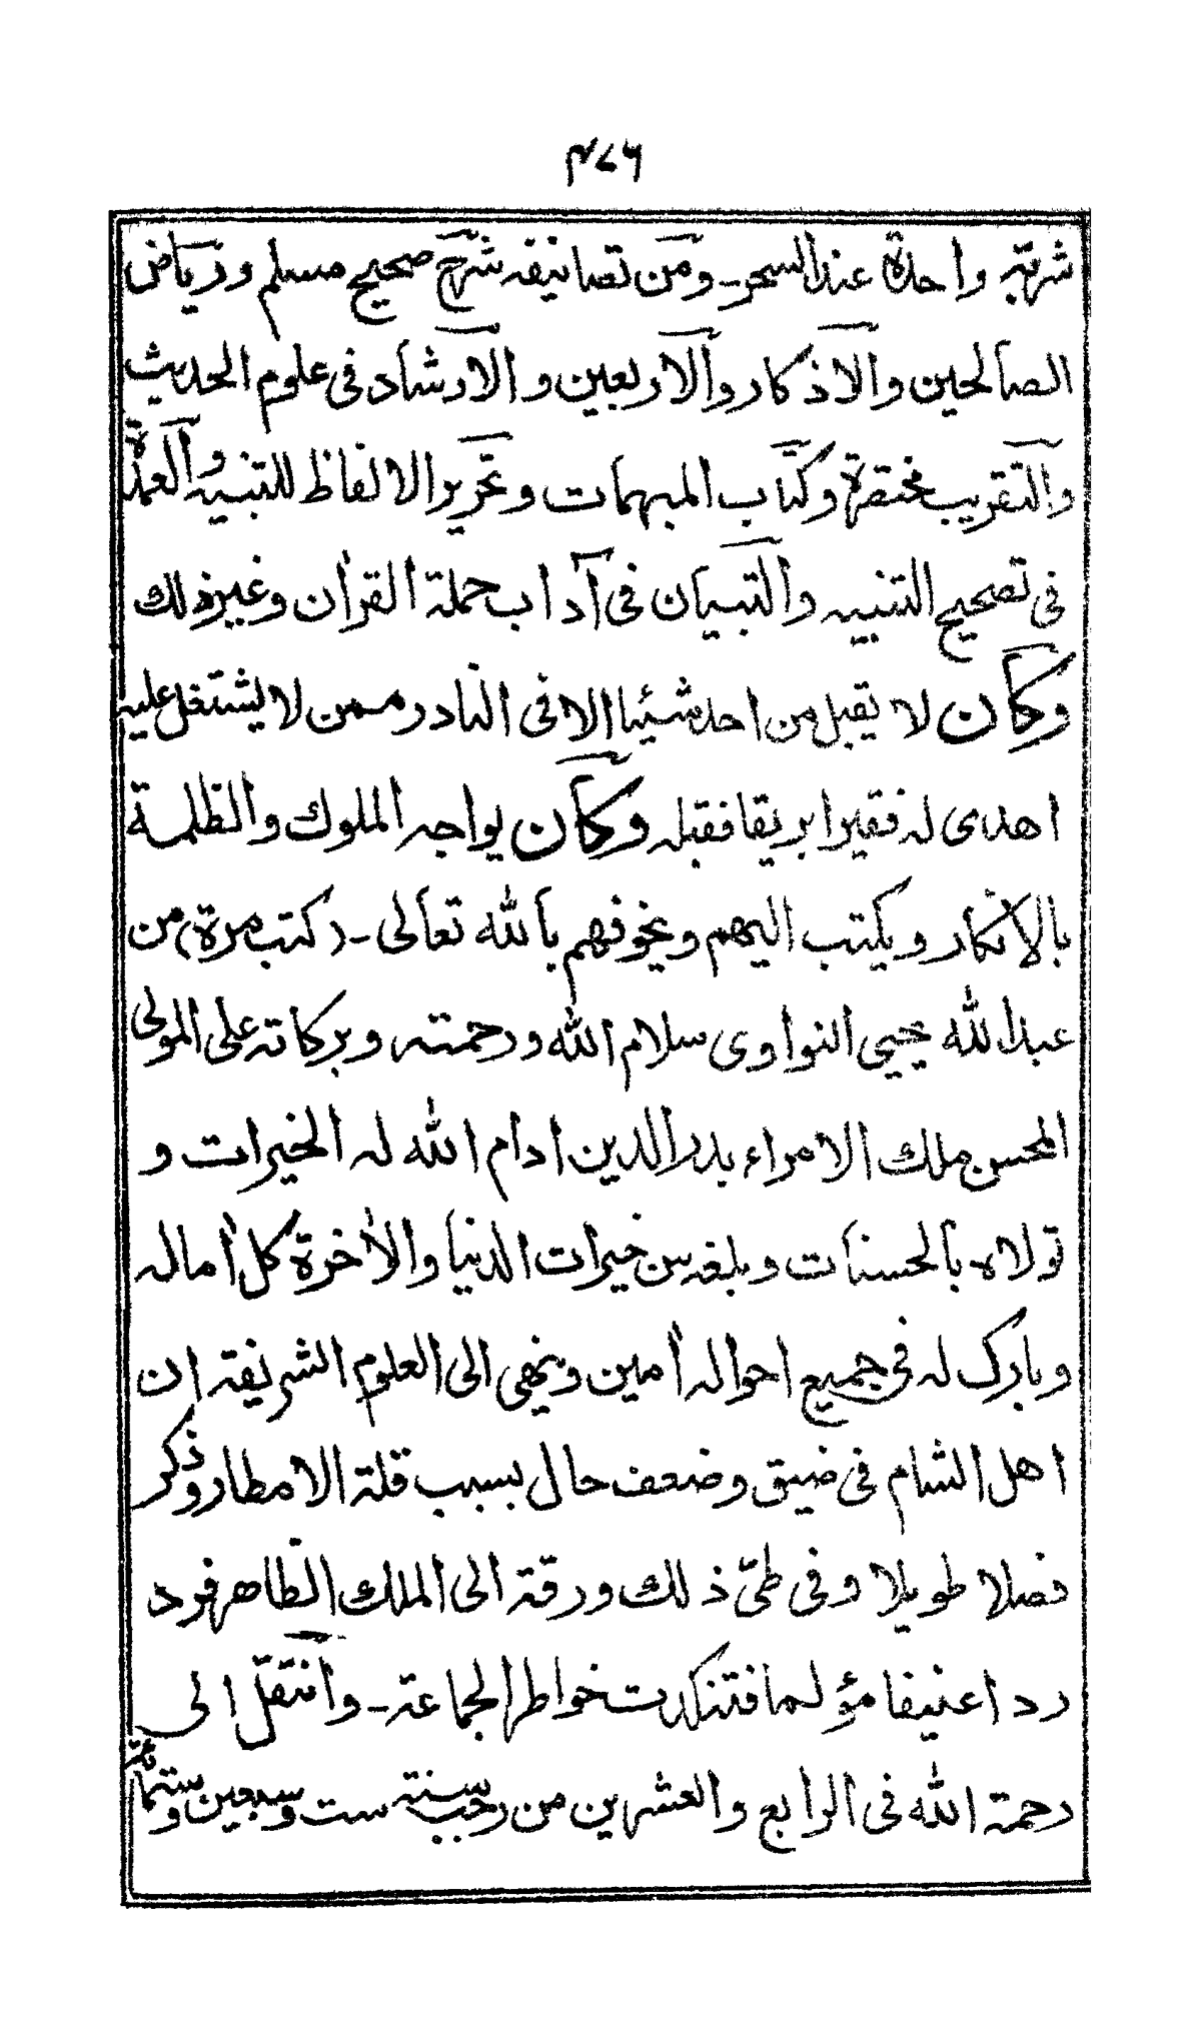 ۴۷۶
شربة واحدة عند السحر۔ ومن تصانيفه شرح صحيح مسلم ورياض
الصالحين والاذكار والاربعين والارشاد فى علوم الحديث
والتقريب مختصرة وكتاب المبهمات وتحرير الالفاظ للتنبيه والعمدة
فى تصحيح التنبيه والتبيان فى آداب حملة القرآن وغير ذلك
وكان لا يقبل من احد شيئا الا فى النادر ممن لا يشتغل عليه
اهدى له فقير ابريقا فقبله وكان يواجه الملوك والظلمة
بالانكار ويكتب اليهم ويخوفهم بالله تعالى۔ (كتب مرة) من
عبد الله يحيى النواوى سلام الله ورحمته وبركاته على المولى
المحسن ملك الامراء بدر الدين ادام الله له الخيرات و
تولاه بالحسنات وبلغه من خيرات الدنيا والأخرة كل أماله
وبارك له فى جميع احواله أمين وينهى الى العلوم الشريفة ان
اهل الشام فى ضيق وضعف حال بسبب قلة الامطار وذكر
فصلا طويلا وفى طىّ ذلك ورقة الى الملك الظاهر فرد
رد اعنيفا مؤلما فتنكدت خواطر الجماعة۔ وانتقل الى
رحمة الله فى الرابع والعشرين من رجب سنة ست وسبعين وستمائة